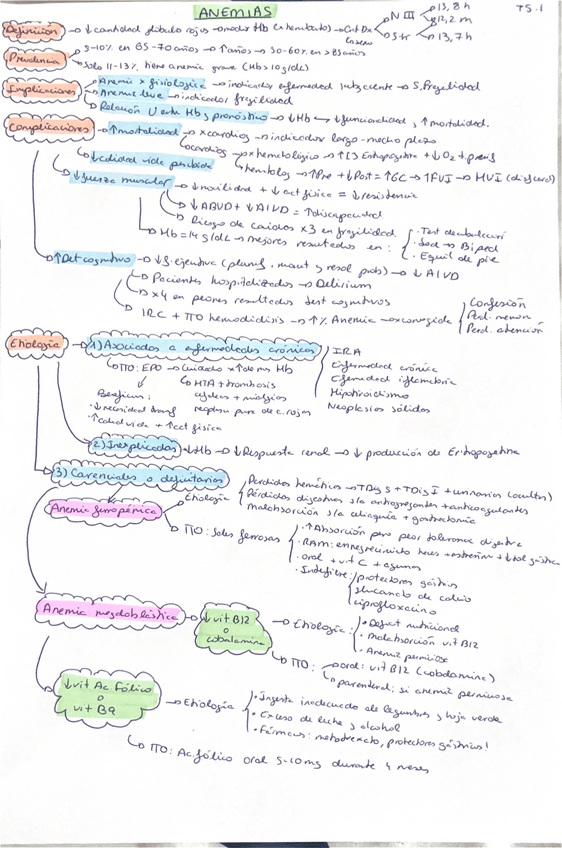 ANEMIAS
T5.1
Definición → ↓ cantidad glóbulo rojos → medir Hb (x hemograma) → Cut Dx
N III → 13,8 h
12,2 m
Str → 13,7 h
Prevalencia → 5-10% en 65-70 años → ↑ años → 30-60% en >85 años
→ Solo 11-13% tiene anemia grave (Hb>10g/dL)
Implicaciones → Anemia x fisiológica → indicador enfermedad subyacente → S. Fragilidad
→ Anemia leve → indicador fragilidad
→ Relación U entre Hb y pronóstico → ↓Hb → ↓ funcionalidad, ↑ mortalidad.
Complicaciones → ↑ mortalidad → x cardios → indicador largo-medio plazo
cardios → x hematológico → ↑[] Eritropoyetina + ↓O2 +
→ hemodin → ↑Pre + ↓Post = ↑GC → ↑FVI → HVI
↓ calidad vida percibida
↓ fuerza muscular → ↓ movilidad + ↓ act física = ↓ resistencia
→ ↓ABVD + ↓AIVD = ↑ discapacidad
→ Riesgo de caídas x3 en fragilidad
→ Hb = 14 g/dL → mejores resultados en:
• Test deambular
• Sed → Biped
• Equil de pie
↑ Det cognitivo → ↓ f. ejecutiva (planif, mant y resol prob) → ↓ AIVD
→ Pacientes hospitalizados → Delirium
→ x4 en peores resultados test cognitivos
→ IRC + TTO hemodiálisis → ↑% Anemia → x corregida
Confusión
Perd. memoria
Perd. atención
Etiología → 1) Asociados a enfermedades crónicas
IRA
Enfermedad crónica
Enfermedad inflamatoria
Hipotiroidismo
Neoplasias sólidos
TTO: EPO → Cuidado x ↑ de mas Hb
→ HTA + trombosis
Beneficios:
• ↓ necesidad transf
• ↑ calidad vida + ↑ act física
cefaleas + mialgias
aplasia pura de c. rojos
2) Inexplicados → ↓Hb → ↓ Respuesta renal → ↓ producción de Eritropoyetina
3) Carenciales o deficitarios
Anemia ferropénica
Etiología
Perdidas hemáticas → TDig S + TDig I + urinarias (ocultas)
Pérdidas digestivas s/a antiagregantes + anticoagulantes
Malabsorción s/a celiaquía + gastrectomía
TTO: Sales ferrosas
• ↑ Absorción pero peor tolerancia digestiva
• RAM: ennegrecimiento heces + estreñim + ↓ tol gástrica
• oral + vit C + ayunas
• Interfiere: protectores gástricos
glucanato de calcio
ciprofloxacino
Anemia megaloblástica → ↓ vit B12
o
cobalamina
→ Etiología:
• Deficit nutricional
• Malabsorción vit B12
• Anemia perniciosa
→ TTO: → oral: vit B12 (cobalamina)
→ parenteral: si anemia perniciosa
↓ vit Ac. Fólico
o
vit B9
→ Etiología
• Ingesta inadecuada de legumbres y hoja verde
• Exceso de leche y alcohol
• Fármacos: metotrexato, protectores gástricos!
→ TTO: Ac. fólico oral 5-10mg durante 4 meses